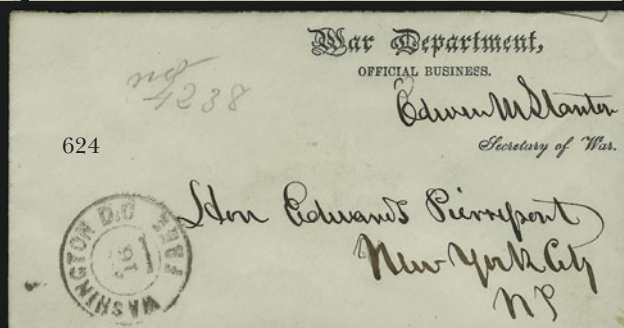 War Department,
OFFICIAL BUSINESS.
No
4238
Edwin M Stanton
624
Secretary of War.
Hon Edwards Pierrepont
New York City
NY
WASHINGTON D.C. FREE